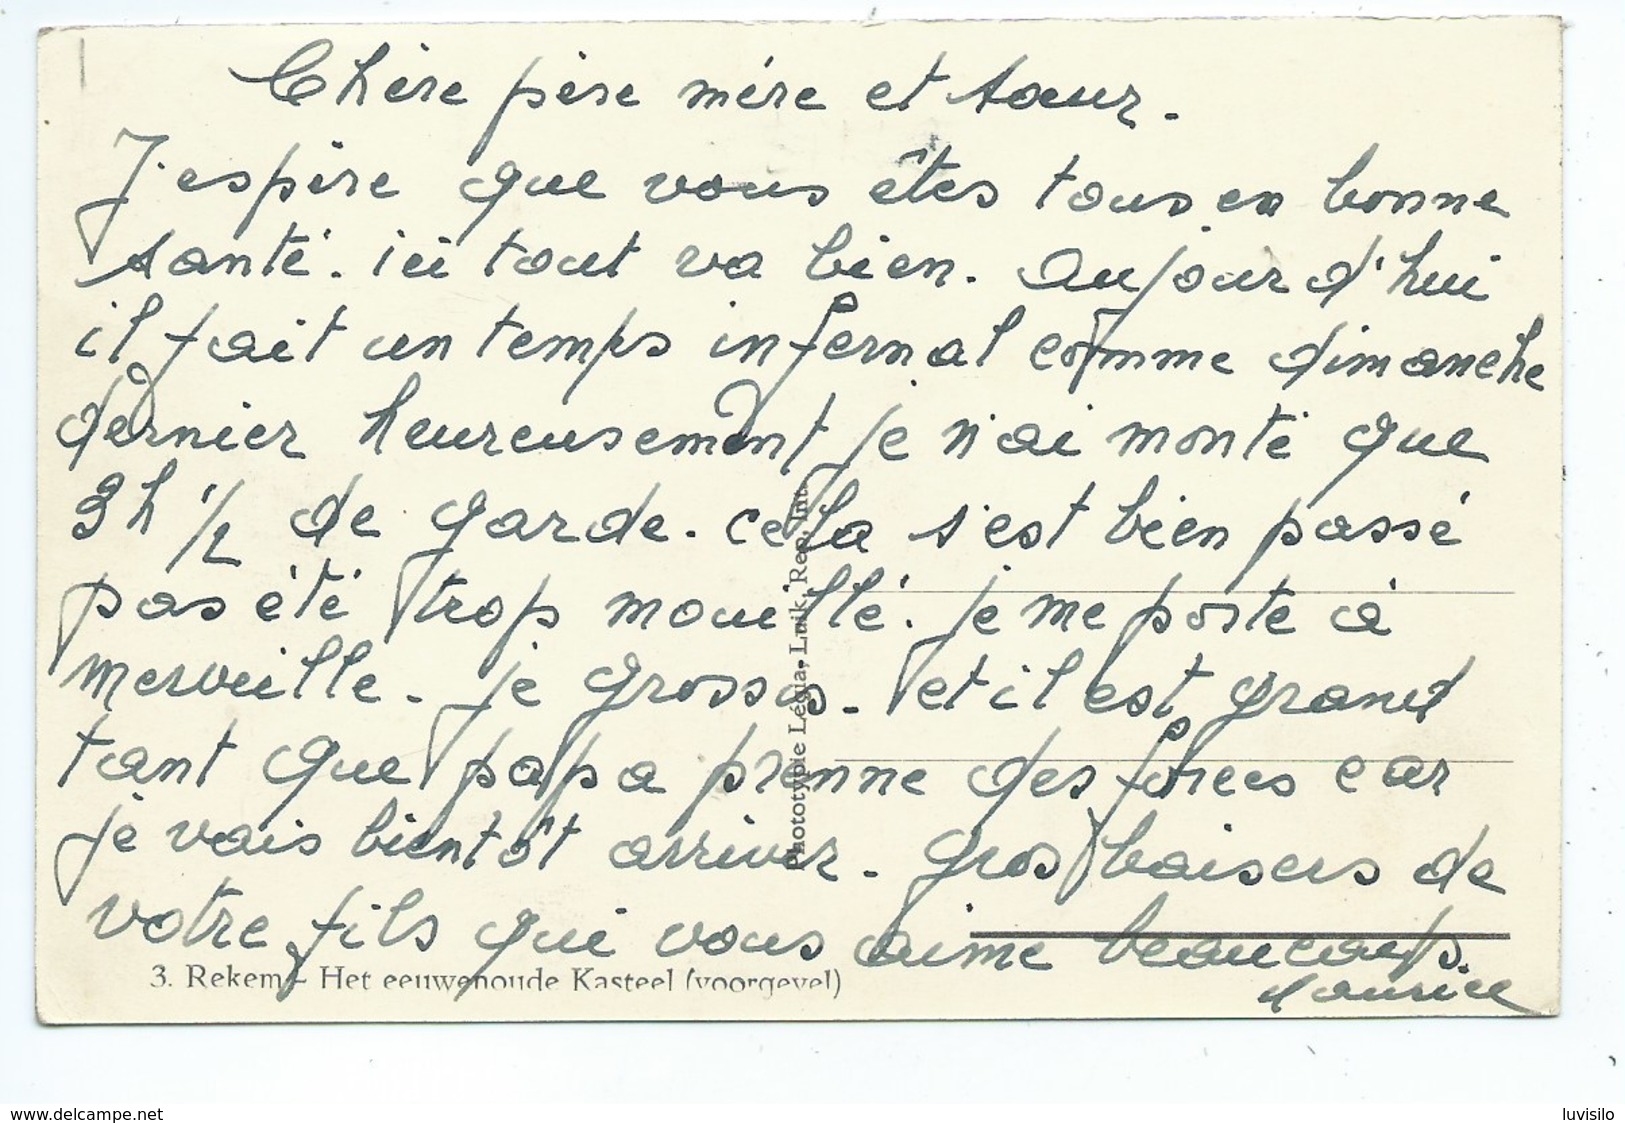 Chère père mère et sœur.
J'espère que vous êtes tous en bonne
santé. ici tout va bien. aujourd'hui
il fait un temps infernal comme dimanche
dernier heureusement je n'ai monté que
3h 1/2 de garde. cela s'est bien passé
pas été trop mouillé. je me porte à
merveille. je grossis. et il est grand
tant que papa prenne des forces car
je vais bientôt arriver. gros baisers de
votre fils qui vous aime beaucoup.
Maurice
3. Rekem - Het eeuwenoude Kasteel (voorgevel)
Phototypie Légia, Luik, Rep. Int.
www.delcampe.net
luvisilo